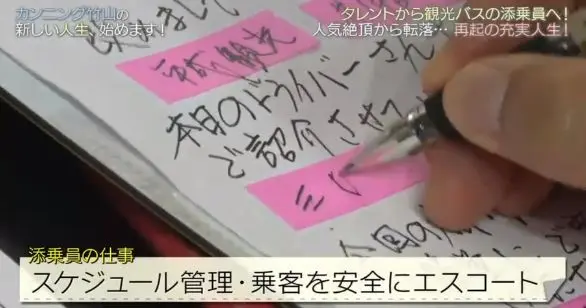 カンニング竹山の
新しい人生、始めます!
タレントから観光バスの添乗員へ!
人気絶頂から転落… 再起の充実人生!
本日のドライバーさん
ご紹介させて
添乗員の仕事
スケジュール管理・乗客を安全にエスコート